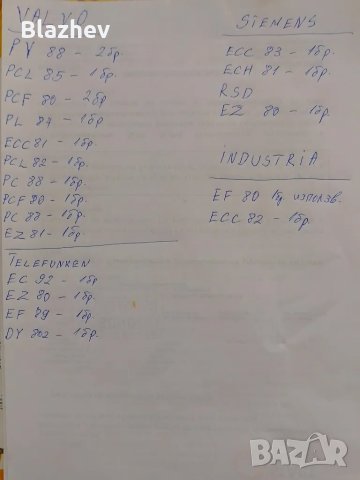 Blazhev
VALVO
PY 88 - 2бр.
PCL 85 - 1бр.
PCF 80 - 2бр
PL 84 - 1бр
ECC81 - 1бр.
PCL 82 - 1бр.
PC 88 - 1бр.
PCF80 - 1бр.
PC 88 - 1бр.
EZ 81 - 1бр.
TELEFUNKEN
EC 92 - 1бр.
EZ 80 - 1бр.
EF 89 - 1бр.
DY 802 - 1бр.
SIEMENS
ECC 83 - 1бр.
ECH 81 - 1бр.
RSD
EZ 80 - 1бр.
INDUSTRIA
EF 80 използв.
ECC 82 - 1бр.
BAZAR